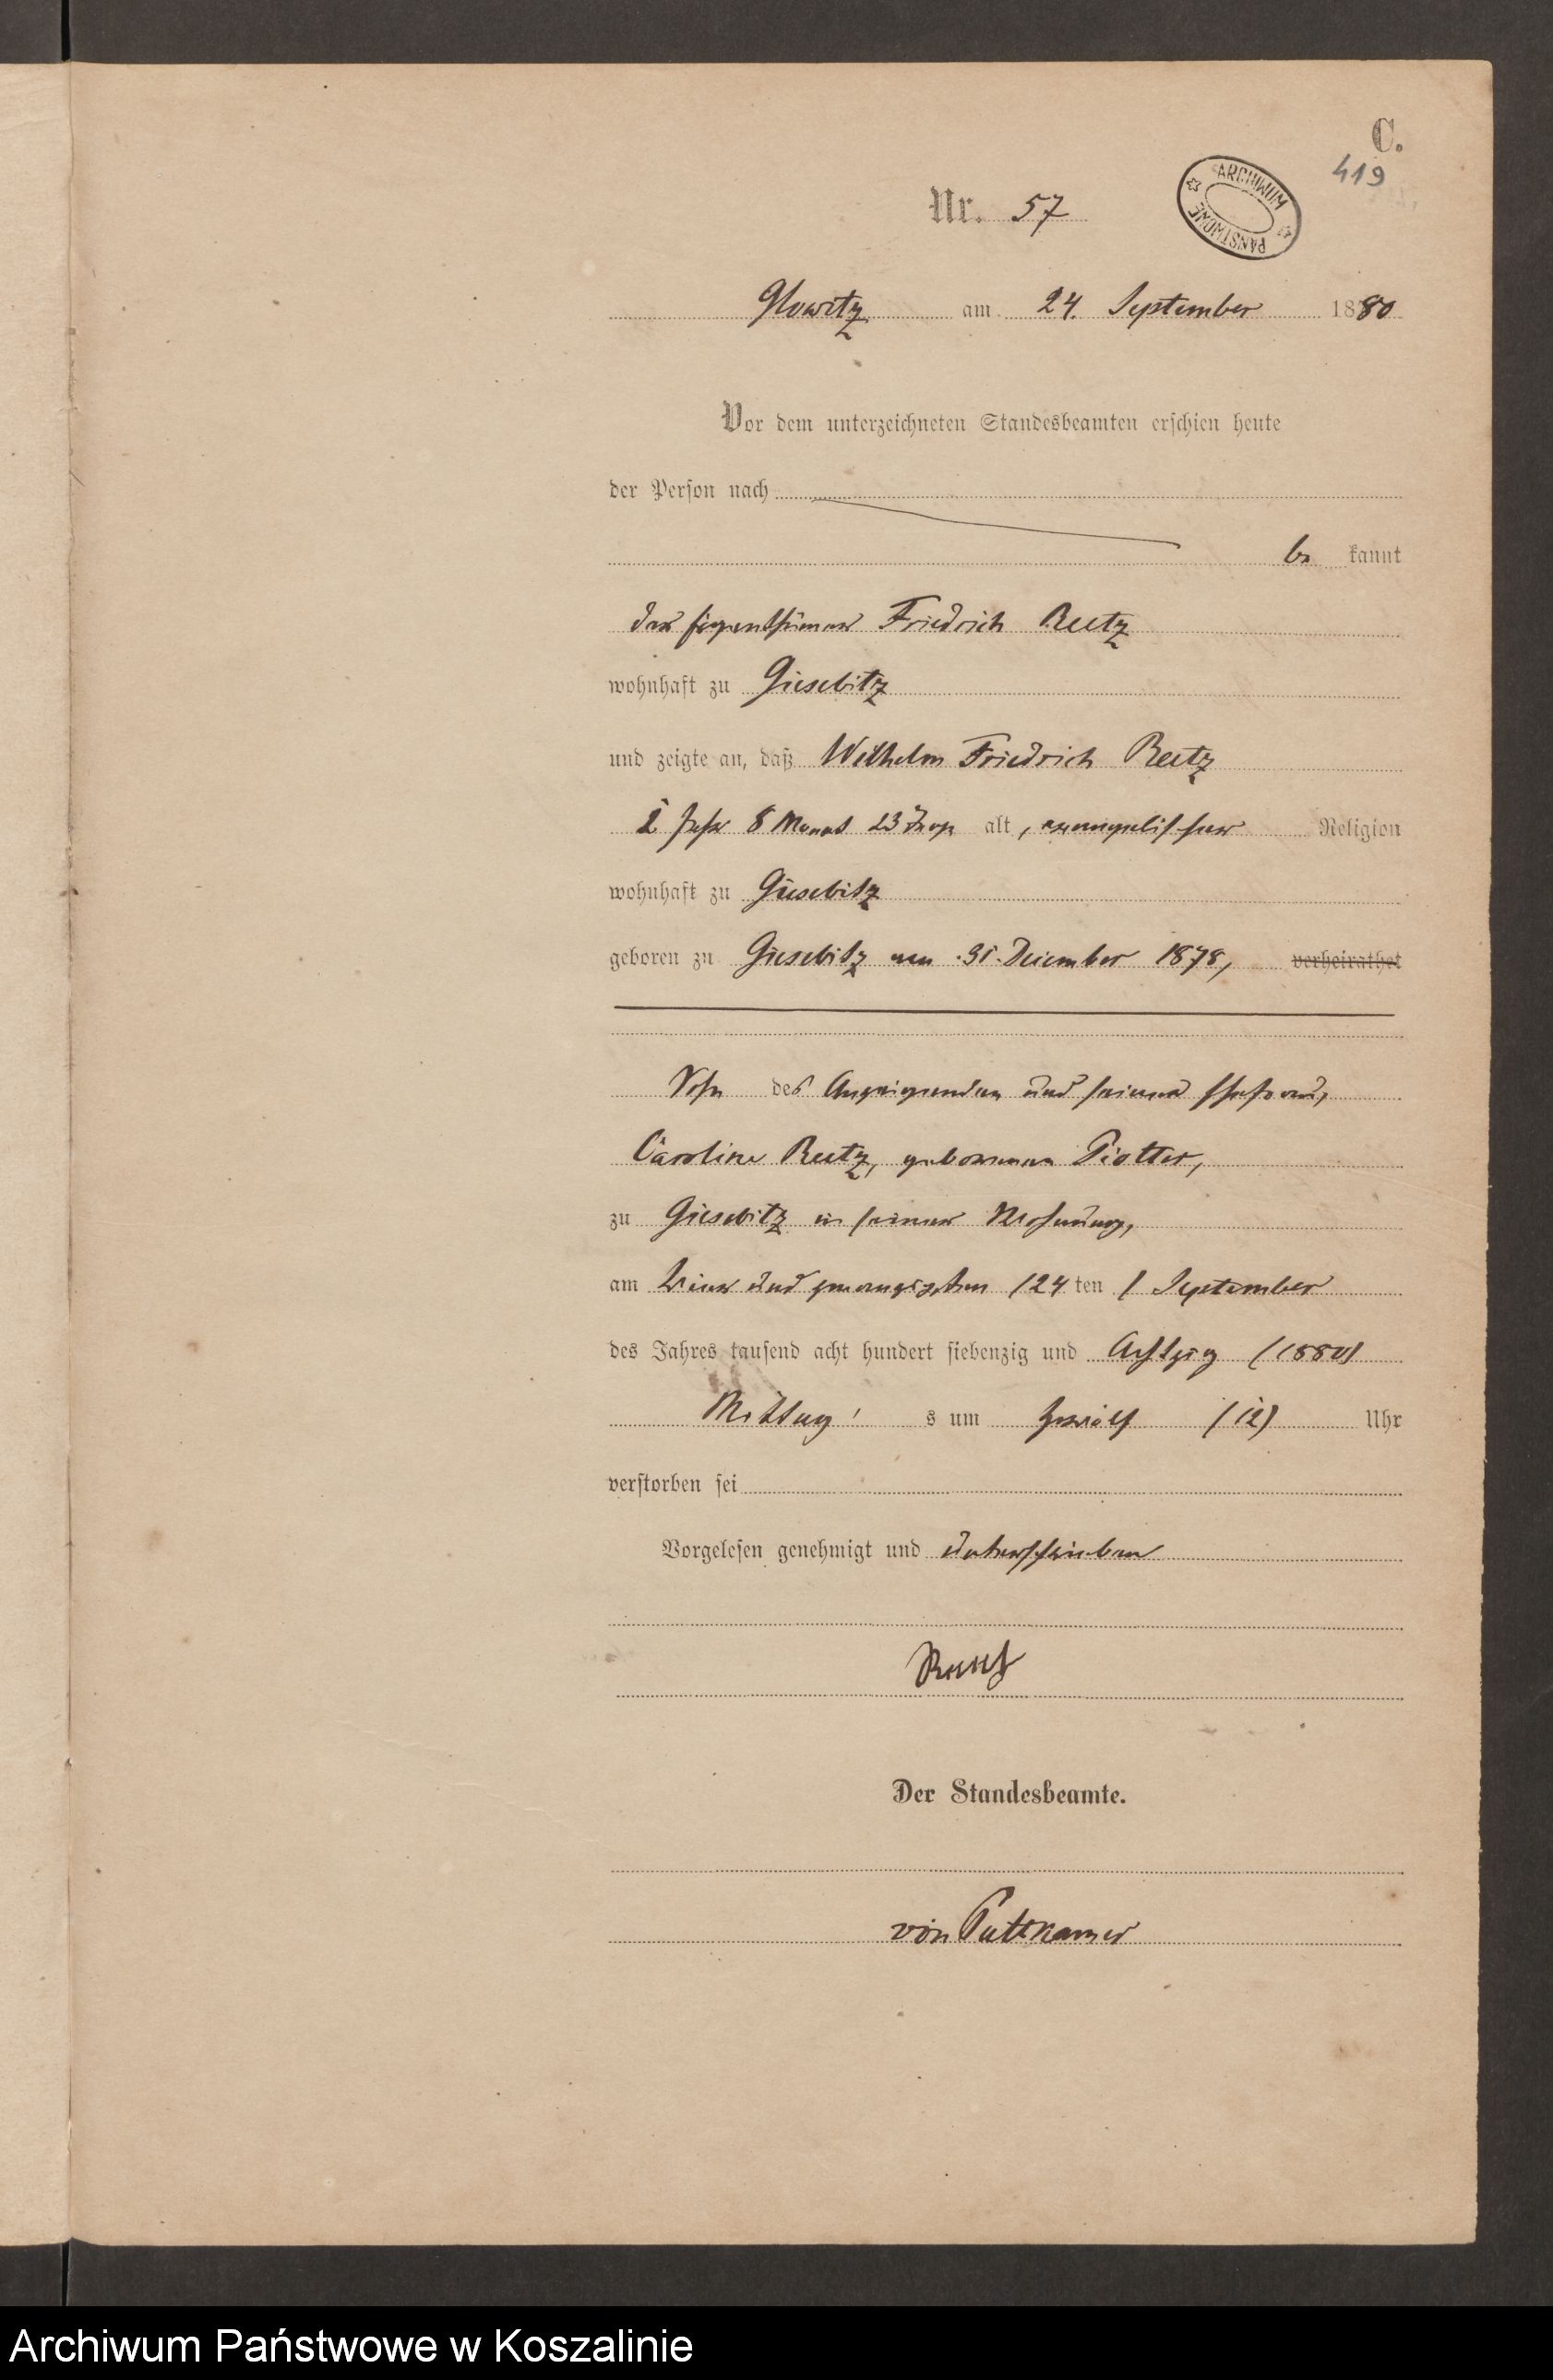 C.
419
ARCHIWUM PAŃSTWOWE
Nr. 57
Glowitz am 24. September 1880
Vor dem unterzeichneten Standesbeamten erschien heute
der Person nach
be kannt
der Eigenthümer Friedrich Reetz
wohnhaft zu Giesebitz
und zeigte an, daß Wilhelm Friedrich Reetz
1 Jahr 8 Monat 23 Tage alt, evangelischer Religion
wohnhaft zu Giesebitz
geboren zu Giesebitz am 31. December 1878, verheirathet
Sohn des Anzeigenden und seiner Ehefrau,
Caroline Reetz, geborenen Piotter,
zu Giesebitz in seiner Wohnung,
am vier und zwanzigsten (24 ten) September
des Jahres tausend acht hundert siebenzig und Achtzig (1880)
Mittag s um zwölf (12) Uhr
verstorben sei
Vorgelesen genehmigt und unterschrieben
Reetz
Der Standesbeamte.
von Puttkamer
Archiwum Państwowe w Koszalinie